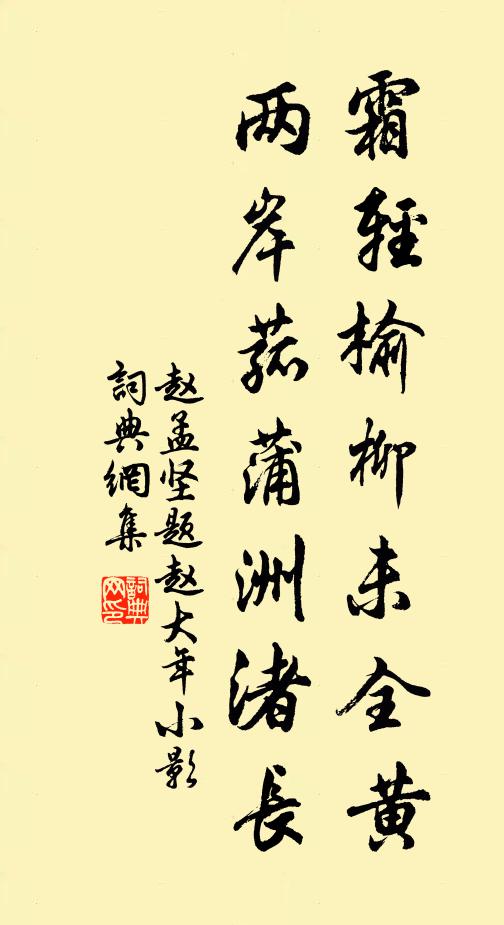 霜輕榆柳未全黃
两岸菰蒲洲渚長
赵孟坚题赵大年小影
詞典網集
詞典网印